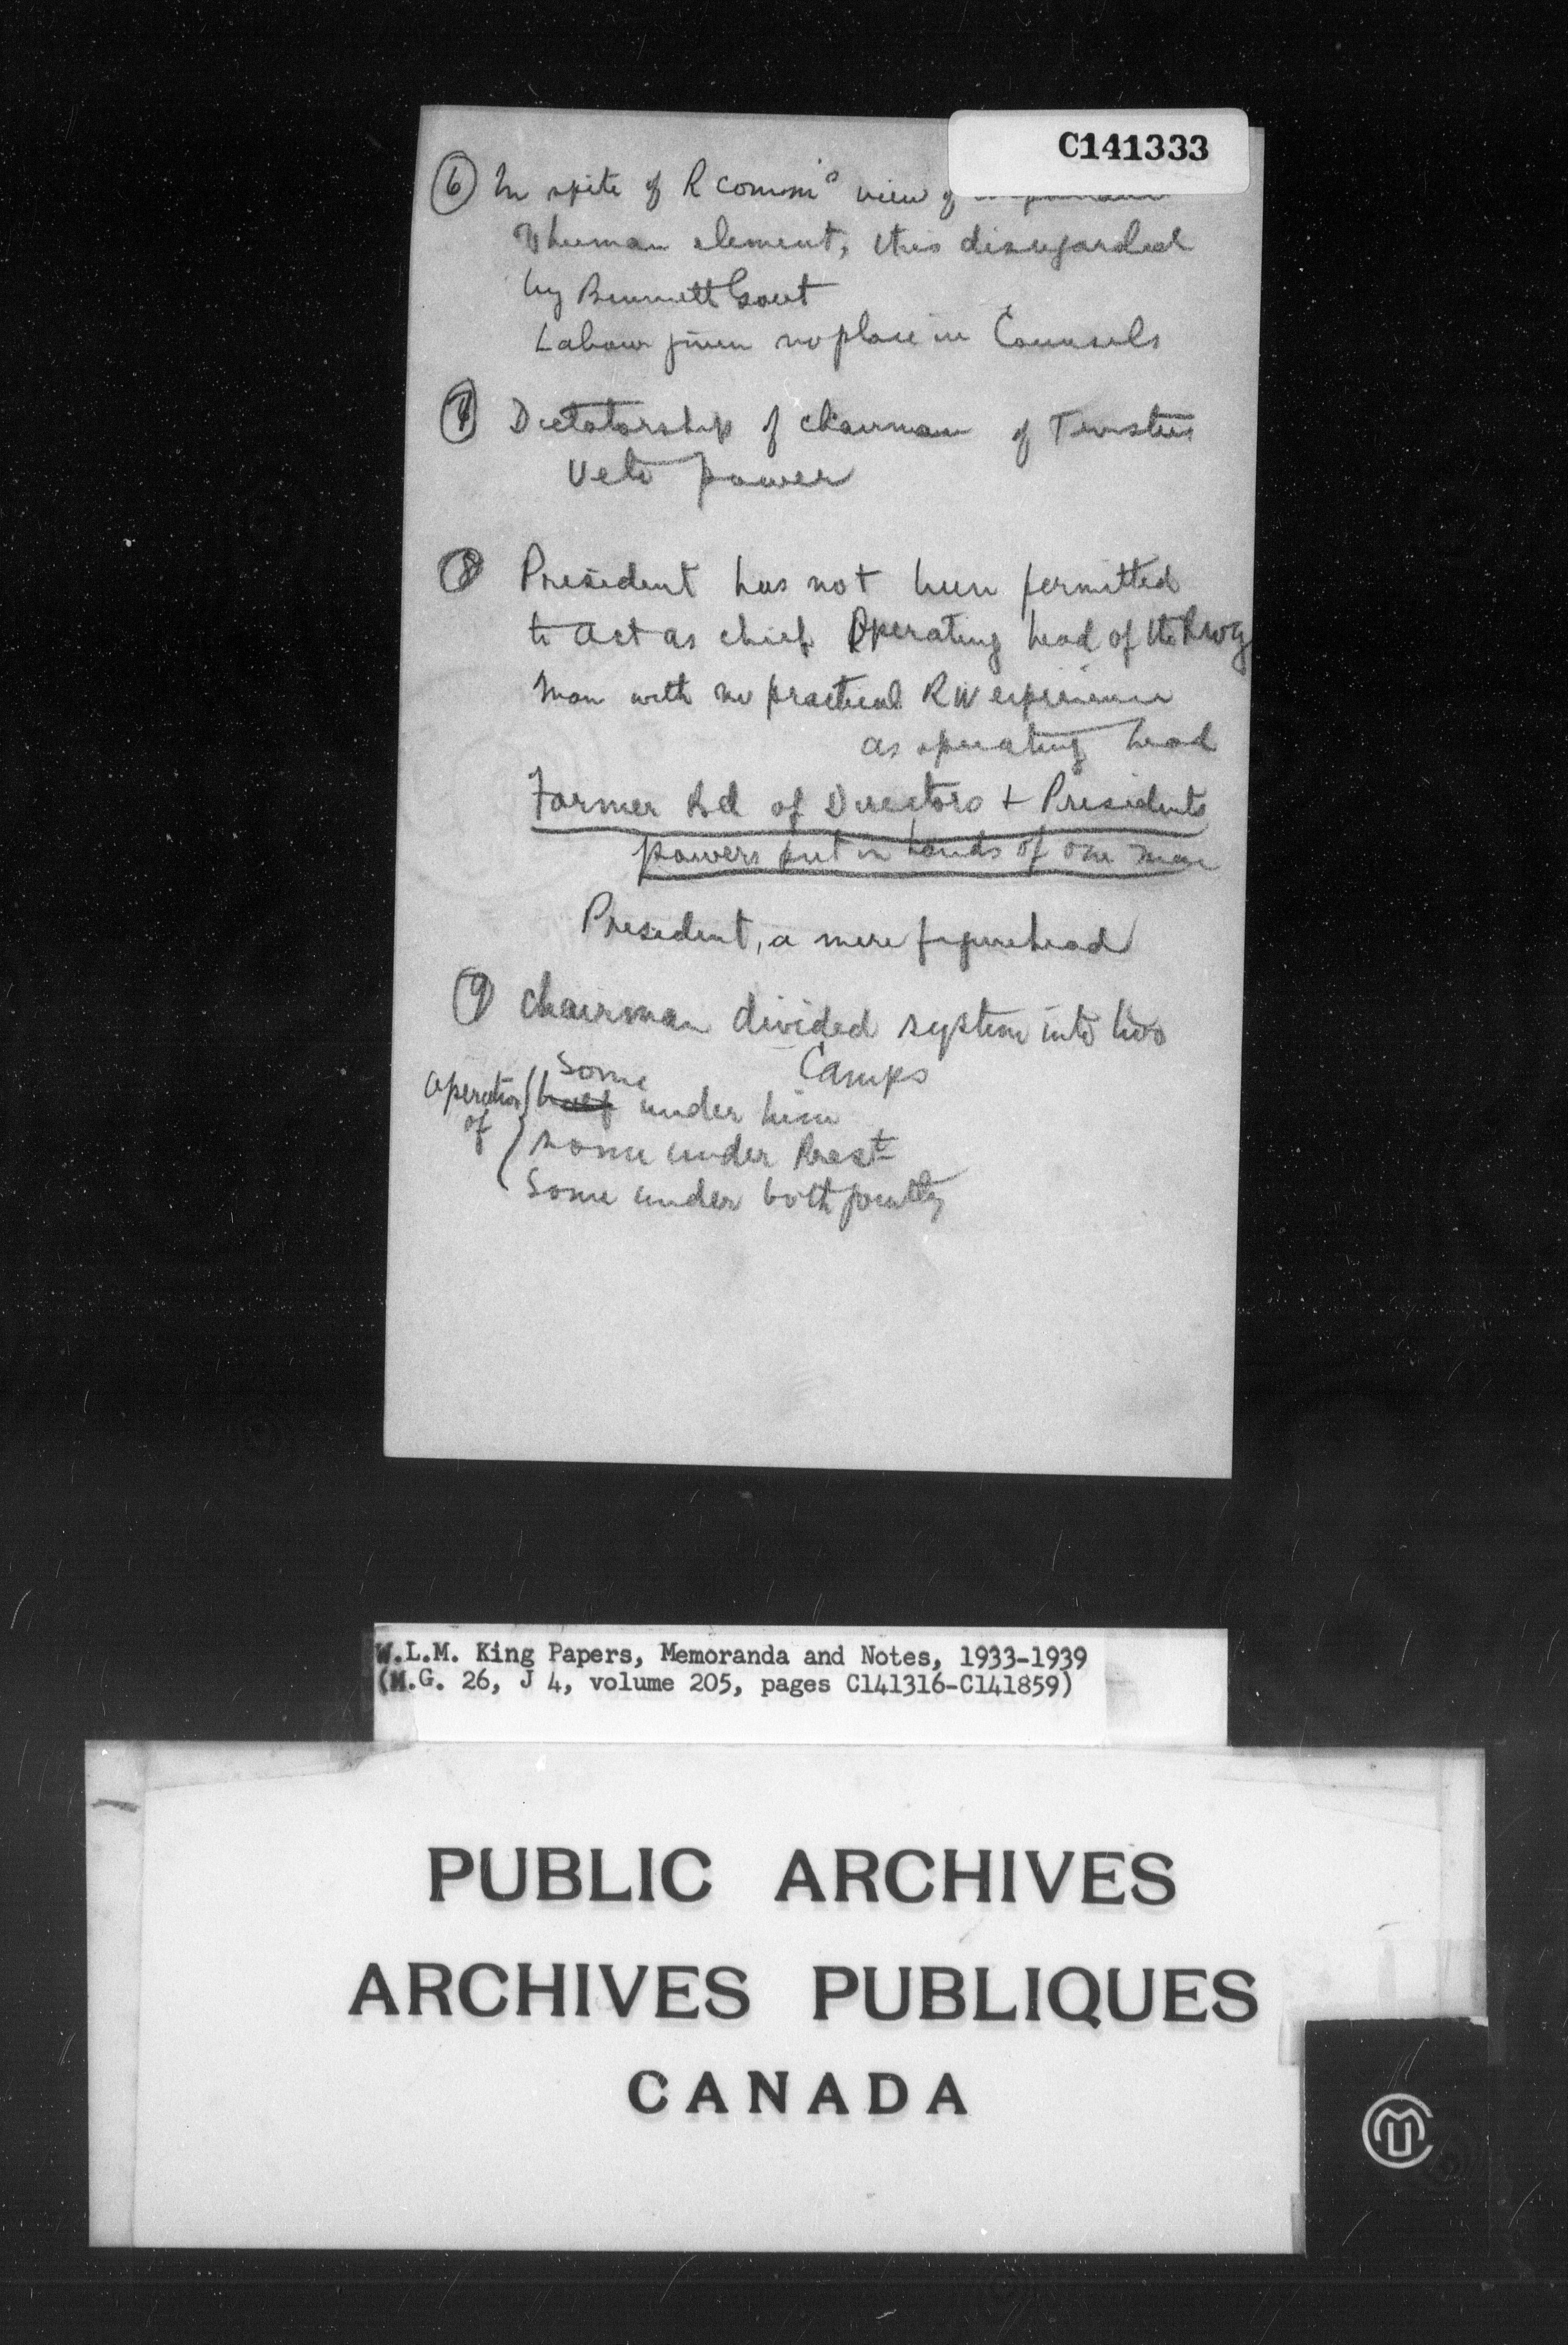 C141333
⑥ In spite of R Commn's view of
human element, this disregarded
by Bennett Govt
Labour given no place in Counsels
⑦ Dictatorship of chairman of Trustees
Veto power
⑧ President has not been permitted
to act as chief Operating head of the Rwy
Man with no practical RW experience
as operating head
Former Bd of Directors + Presidents
powers put in hands of one man
President, a mere figurehead
⑨ Chairman divided system into two
Camps
Operation of
some
half under him
some under Prest
Some under both jointly
W.L.M. King Papers, Memoranda and Notes, 1933-1939
(M.G. 26, J 4, volume 205, pages C141316-C141859)
PUBLIC ARCHIVES
ARCHIVES PUBLIQUES
CANADA